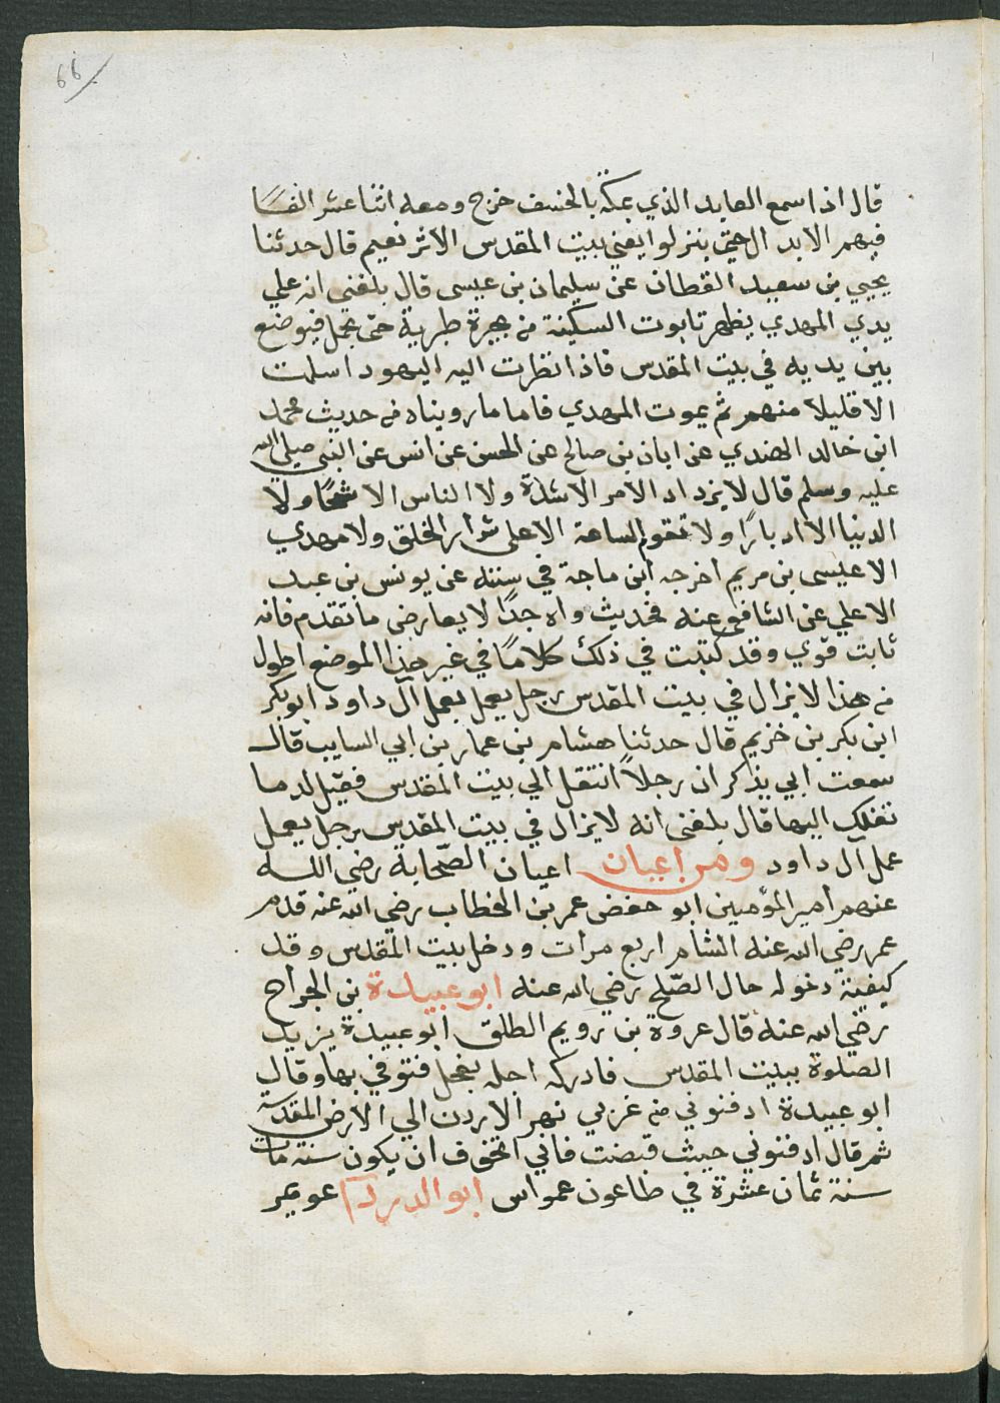 66
قال اذا سمع العابد الذي بمكة بالخسف خرج ومعه اثنا عشر الفًا
فيهم الابدال حتى ينزلوا يعني بيت المقدس الاثر نعيم قال حدثنا
يحيي بن سعيد القطان عن سليمان بن عيسى قال بلغني انه علي
يدي المهدي يظهر تابوت السكينة من بحيرة طبرية حتى يحمل فيوضع
بين يديه في بيت المقدس فاذا نظرت اليه اليهود اسلمت
الا قليلا منهم ثم يموت المهدي فاما ما رويناه من حديث محمد
ابن خالد الهندي عن ابان بن صالح عن الحسن عن انس عن النبي صلي الله
عليه وسلم قال لا يزداد الامر الا شدة ولا الناس الا شحًا ولا
الدنيا الا ادبارًا ولا تقوم الساعة الا على شرار الخلق ولا مهدي
الا عيسى بن مريم اخرجه ابن ماجة في سننه عن يونس بن عبد
الاعلي عن الشافعي عنه فحديث واه جدًا لا يعارض ما تقدم فانه
ثابت قوي وقد كتبت في ذلك كلامًا في غير هذا الموضع اطول
من هذا لا يزال في بيت المقدس رجل يعمل بعمل آل داود ابو بكر
ابن بكر بن خزيم قال حدثنا هشام بن عمار بن ابي السايب قال
سمعت ابي يذكر ان رجلاً انتقل الي بيت المقدس فقيل له ما
نقلك اليها قال بلغني انه لا يزال في بيت المقدس رجل يعمل
عمل آل داود ومن اعيان اعيان الصّحابة رضي الله
عنهم أمير المؤمين ابو حفص عمر بن الخطاب رضي الله عنه قدم
عمر رضي الله عنه الشام اربع مرات ودخل بيت المقدس وقد
كيفية دخوله حال الصّلح رضي الله عنه ابو عبيدة بن الجراح
رضي الله عنه قال عروة بن رويم الطلق ابو عبيدة يزيد
الصلوة ببيت المقدس فادركه اجله بفحل فتوفي بها وقال
ابو عبيدة ادفنوني من غربي نهر الاردن الي الارض المقدسة
ثم قال ادفنوني حيث قبضت فاني اتخوف ان يكون سنة مات
سنة ثمان عشرة في طاعون عمواس ابو الدرداء عويمر